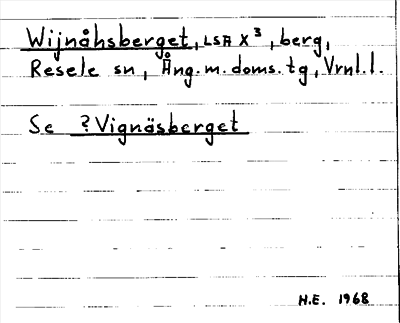 Wijnåhsberget, LSA X³, berg,
Resele sn, Ång. m. doms. tg, Vrnl. l.
Se ? Vignäsberget
H.E. 1968